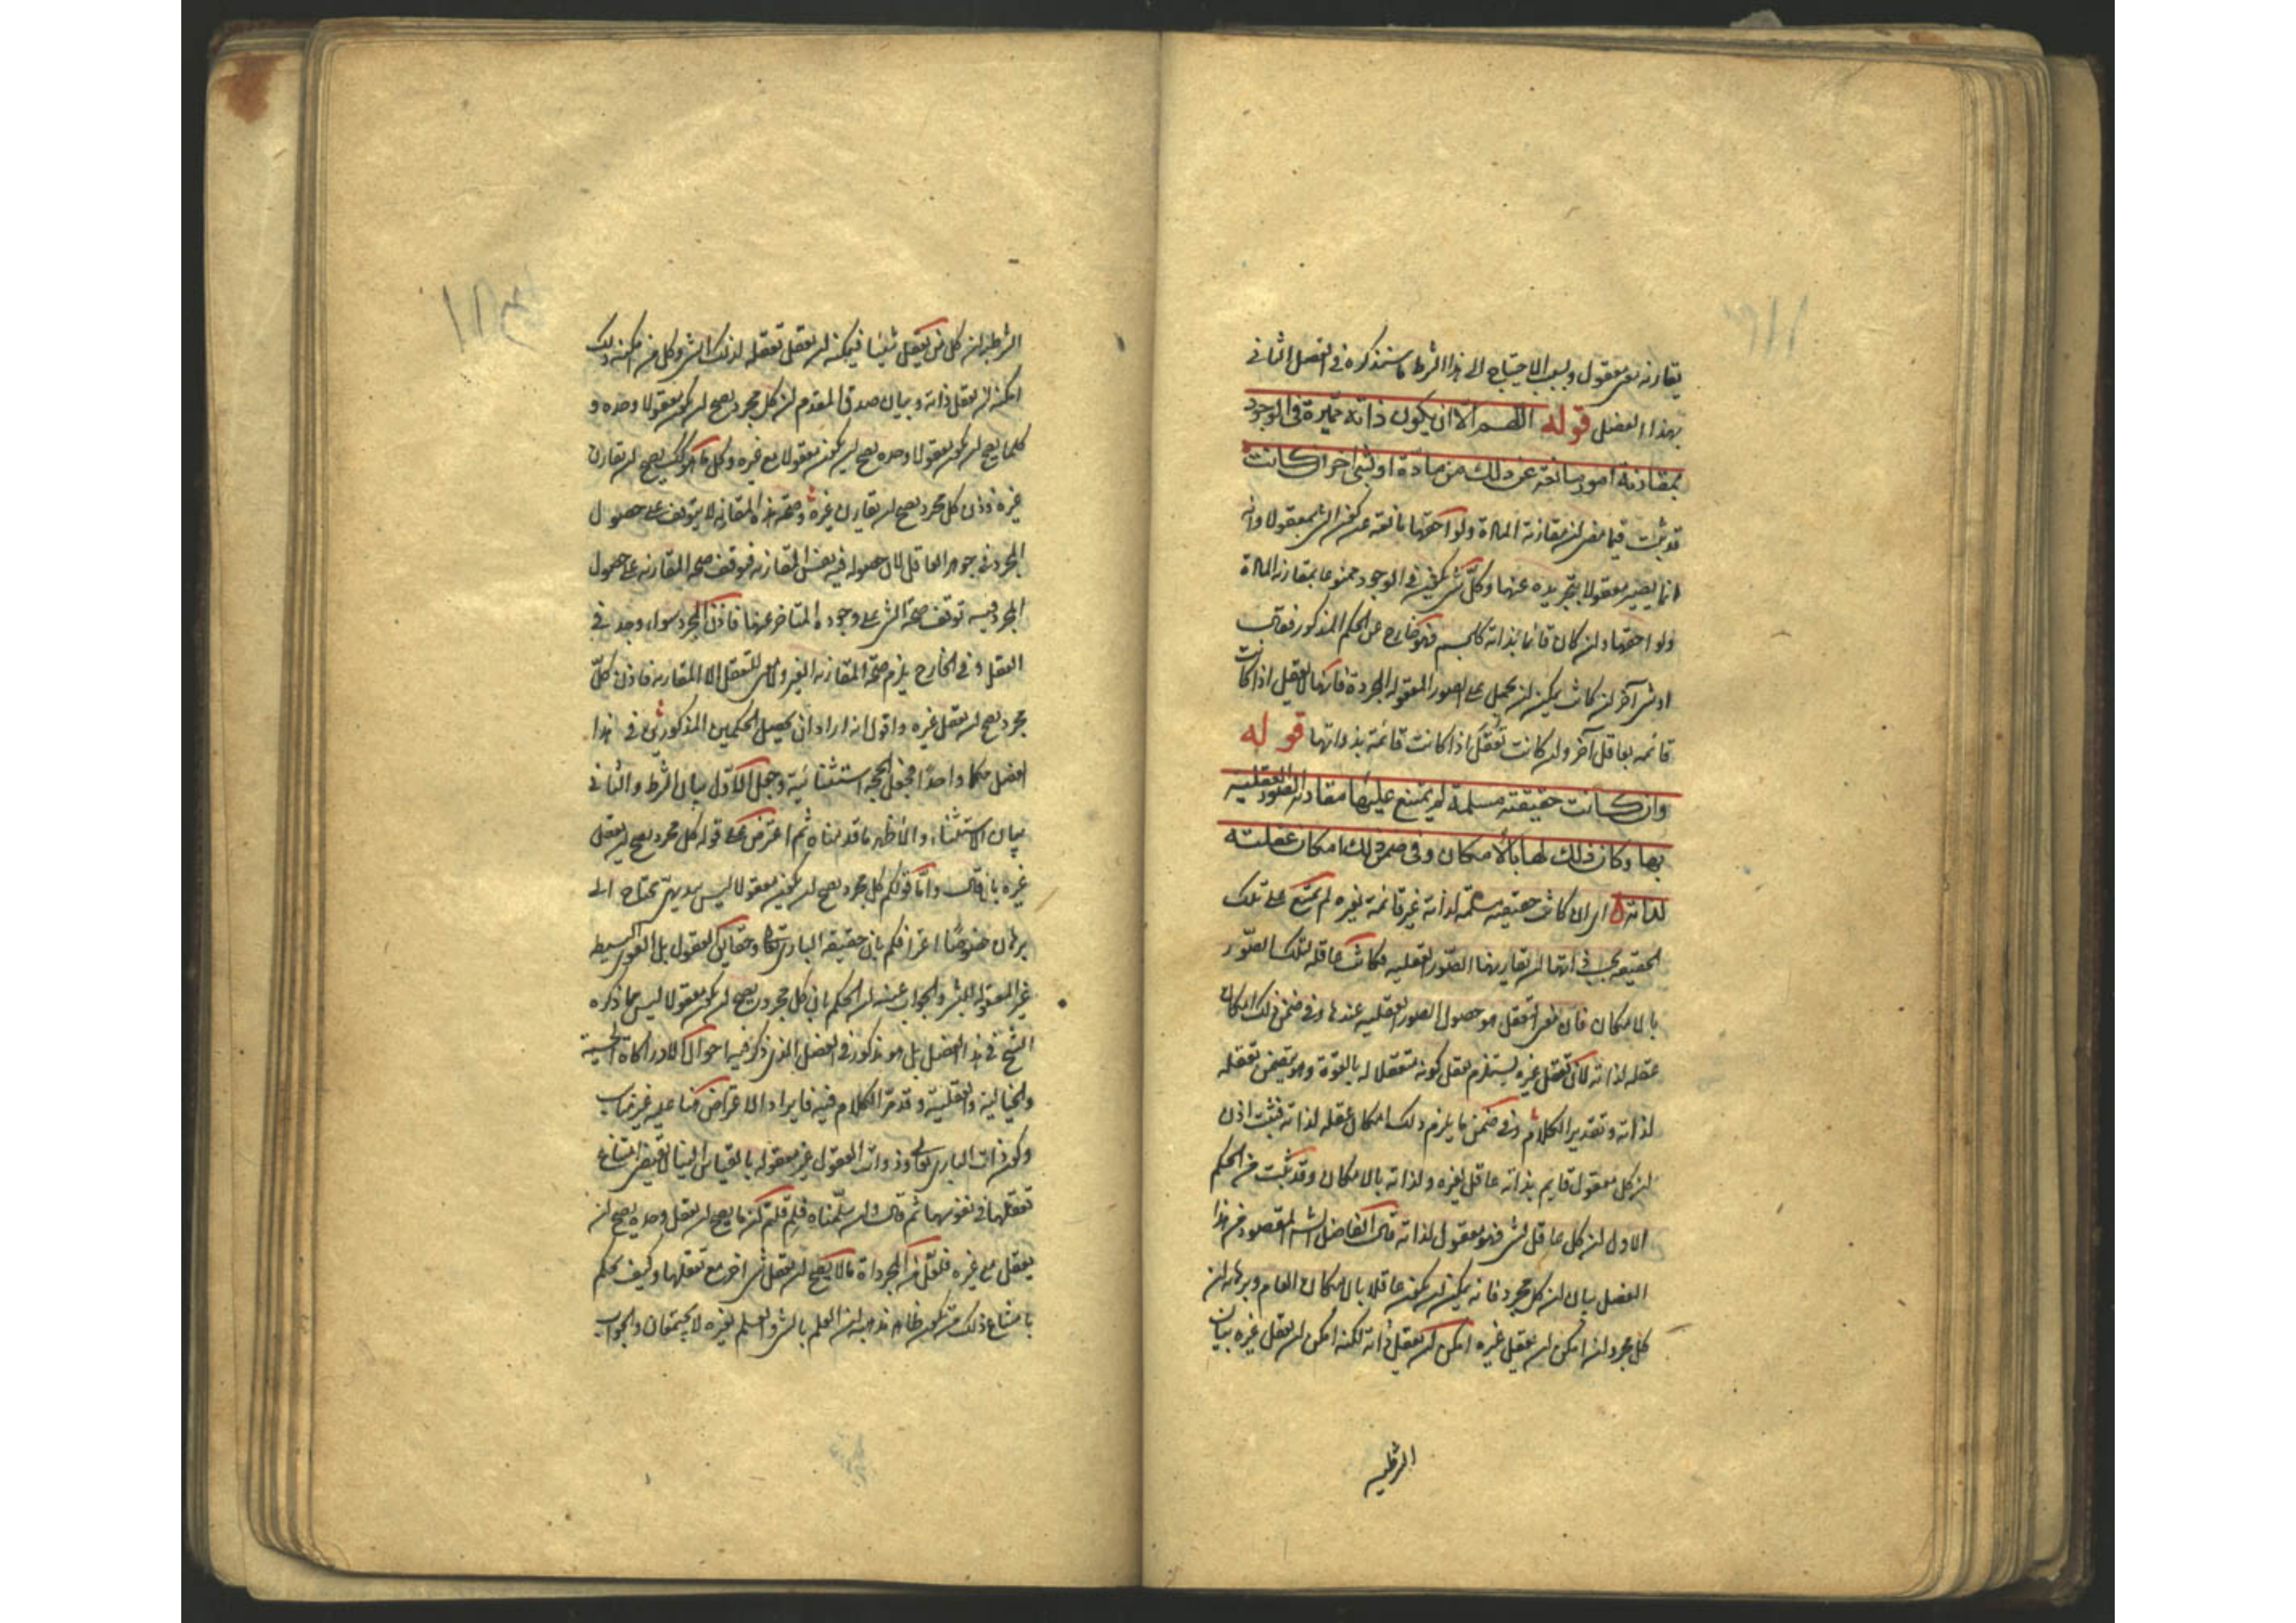 يقارنه معنى معقول وبسبب الاحتياج الى هذا الشرط ما سنذكره فى الفصل الثانى
بهذا الفصل قوله اللهم الا ان يكون ذاته ممتنزة فى الوجود
بمقارنة امور مانعة عن ذلك من مادة او شئ اخر ان كانت
قد ثبت فيما مضى ان مقارنة المادة ولواحقها مانعة عن كون الشئ معقولا وانه
انما يصير معقولا بتجريده عنها وكل شئ يكون فى الوجود ممنوعا بمقارنة المادة
ولواحقها وان كان قائما بذاته كالجسم فهو خارج عن الحكم المذكور فقال
او شئ آخر ان كانت يمكن ان يحمل على الصور المعقولة المجردة فانها لا تعقل اذا كانت
قائمه بعاقل آخر وان كانت تعقل اذا كانت قائمة بذواتها قوله
وان كانت حقيقته مسلمة لم يمتنع عليها مقارنة الصور العقلية
بها وكان ذلك لها بالامكان وفى ضمن ذلك امكان عقلته
لذاته اى ان كانت حقيقته مسلمة لذاته غير قائمة بغيره لم يمتنع على تلك
الحقيقة بحسب ذاتها ان تقارنها الصور العقليه فكانت عاقله لتلك الصور
بالامكان فان معنى التعقل هو حصول الصور العقليه عندها وفى ضمن ذلك امكان
عقله لذاته لان تعقل غيره يستلزم تعقل كونه متعقلا له بالقوة وهو يتضمن تعقله
لذاته وتقدير الكلام وفى ضمن ما يلزم ذلك امكان عقله لذاته فثبت اذن
ان كل معقول قايم بذاته عاقل لغيره ولذاته بالامكان وقد ثبت من الحكم
الاول ان كل عاقل لشئ فهو معقول لذاته قال الفاضل الشارح المقصود من هذا
الفصل بيان ان كل مجرد فانه يمكن ان يكون عاقلا بالامكان العام وبرهانه ان
كل مجرد ان امكن ان يعقل غيره امكن ان يعقل ذاته لكنه امكن ان يعقل غيره بيان
الشرطيه
الشرطية ان كل من يعقل شيئا فيمكنه ان يعقل تعقله لذلك الشئ وكل من امكنه ذلك
امكنه ان يعقل ذاته وبيان صدق المقدم ان كل مجرد يصح ان يكون معقولا وحده و
كلما يصح ان يكون معقولا وحده يصح ان يكون معقولا مع غيره وكل ما هو كذلك يصح ان يقارن
غيره فاذن كل مجرد يصح ان يقارن غيره وصحة هذه المقارنة لا يتوقف على حصول
المجرد فى جوهر العاقل لان حصوله فيه نفس المقارنه فتوقف صحة المقارنه على حصول
المجرد فيه توقف صحة الشئ على وجوده المتاخر عنها فاذن المجرد سواء وجد فى
العقل او فى الخارج يلزم صحة المقارنه الغير ولا معنى للتعقل الا المقارنة فاذن كل
مجرد يصح ان يعقل غيره واقول انه اراد ان يجعل الحكمين المذكورين فى هذا
الفصل حكما واحدا فجعل الحجة استثنائية وجعل الاول بيان الشرط والثانى
بيان الاستثناء والاظهر ما قدمناه ثم اعترض على قوله كل مجرد يصح ان يعقل
غيره بان قال واما قولكم كل مجرد يصح ان يكون معقولا ليس ببديهى يحتاج الى
برهان خصوصا اعترافكم بان حقيقة البارى تعالى وحقايق العقول بل القوى البسيطه
غير المعقولة للبشر والجواب عنه ان الحكم بان كل مجرد يصح ان يكون معقولا ليس مما ذكره
الشيخ فى هذا الفصل بل هو مذكور فى الفصل الذى ذكر فيه احوال الادراكات الحسية
والخيالية والعقلية وقد مر الكلام فيه فايراد الاعتراض هنا عليه غير مناسب
وكون ذات البارى تعالى وذوات العقول غير معقوله بالقياس الينا لا يقتضى امتناع
تعقلها فى نفوسها ثم قال وان سلمناه فلم قلتم ان ما يصح ان يعقل وحده يصح ان
يعقل مع غيره فلعل من المجردات ما لا يصح ان يعقل شئ اخر مع تعقلها وكيف يحكم
بامتناع ذلك من يكون ظاهر مذهبه ان العلم بالشئ والعلم لغيره لا يجتمعان والجواب